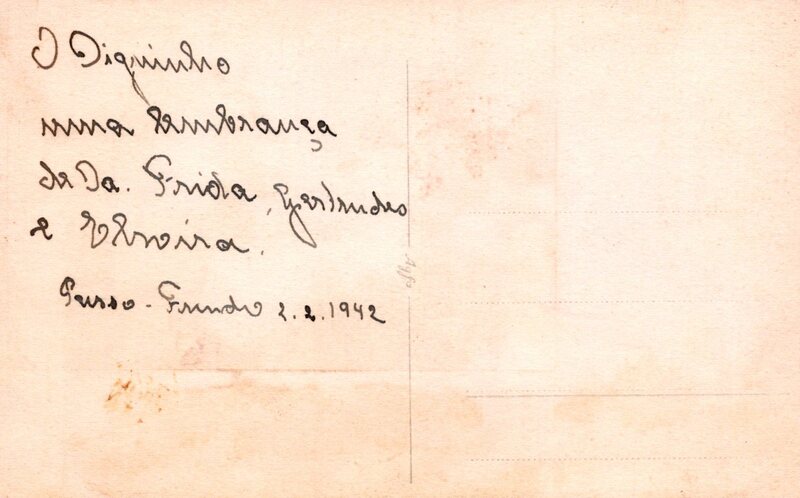 Diquinho
uma lembrança
de Da. Frida, Gertrudes
e Elvira.
Passo - Fundo 2.2.1942